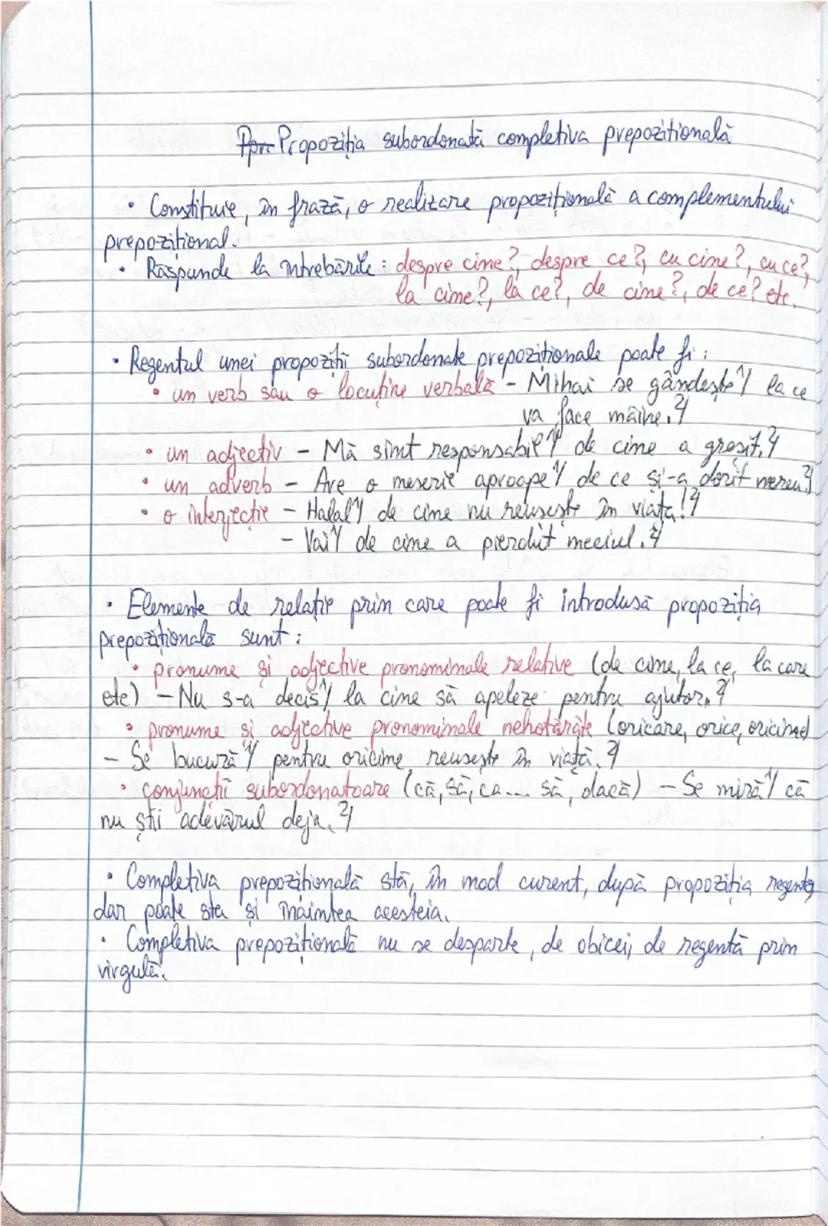 Ppr. Propoziția subordonată completiva prepozitională
• Constituie, în frază, o realizare propozițională a complementului
prepozițional.
• Răspunde la întrebările: despre cine?, despre ce?, cu cine?, cu ce?,
la cine?, la ce?, de cine?, de ce? etc.
• Regentul unei propoziții subordonate prepoziționale poate fi:
• un verb sau o locuține verbală - Mihai se gândește¹/ la ce
va face mâine.²/
• un adjectiv - Mă simt responsabil¹/ de cine a greșit.²/
• un adverb - Are o meserie aproape¹/ de ce și-a dorit mereu.²/
• o interjecție - Halal¹/ de cine nu reușește în viață!²/
- Vai¹/ de cine a pierdut meciul.²/
• Elemente de relație prin care poate fi introdusă propoziția
prepozițională sunt:
• pronume și adjective pronominale relative (de cine, la ce, la care
etc) - Nu s-a decis¹/ la cine să apeleze pentru ajutor.²/
• pronume și adjective pronominale nehotărâte (oricare, orice, oricine)
- Se bucură¹/ pentru oricine reușește în viață.²/
• conjuncții subordonatoare (că, să, ca... să, dacă) - Se miră¹/ că
nu știi adevărul deja.²/
• Completiva prepozițională stă, în mod curent, după propoziția regentă,
dar poate sta și înaintea acesteia.
• Completiva prepozițională nu se desparte, de obicei, de regentă prin
virgulă.